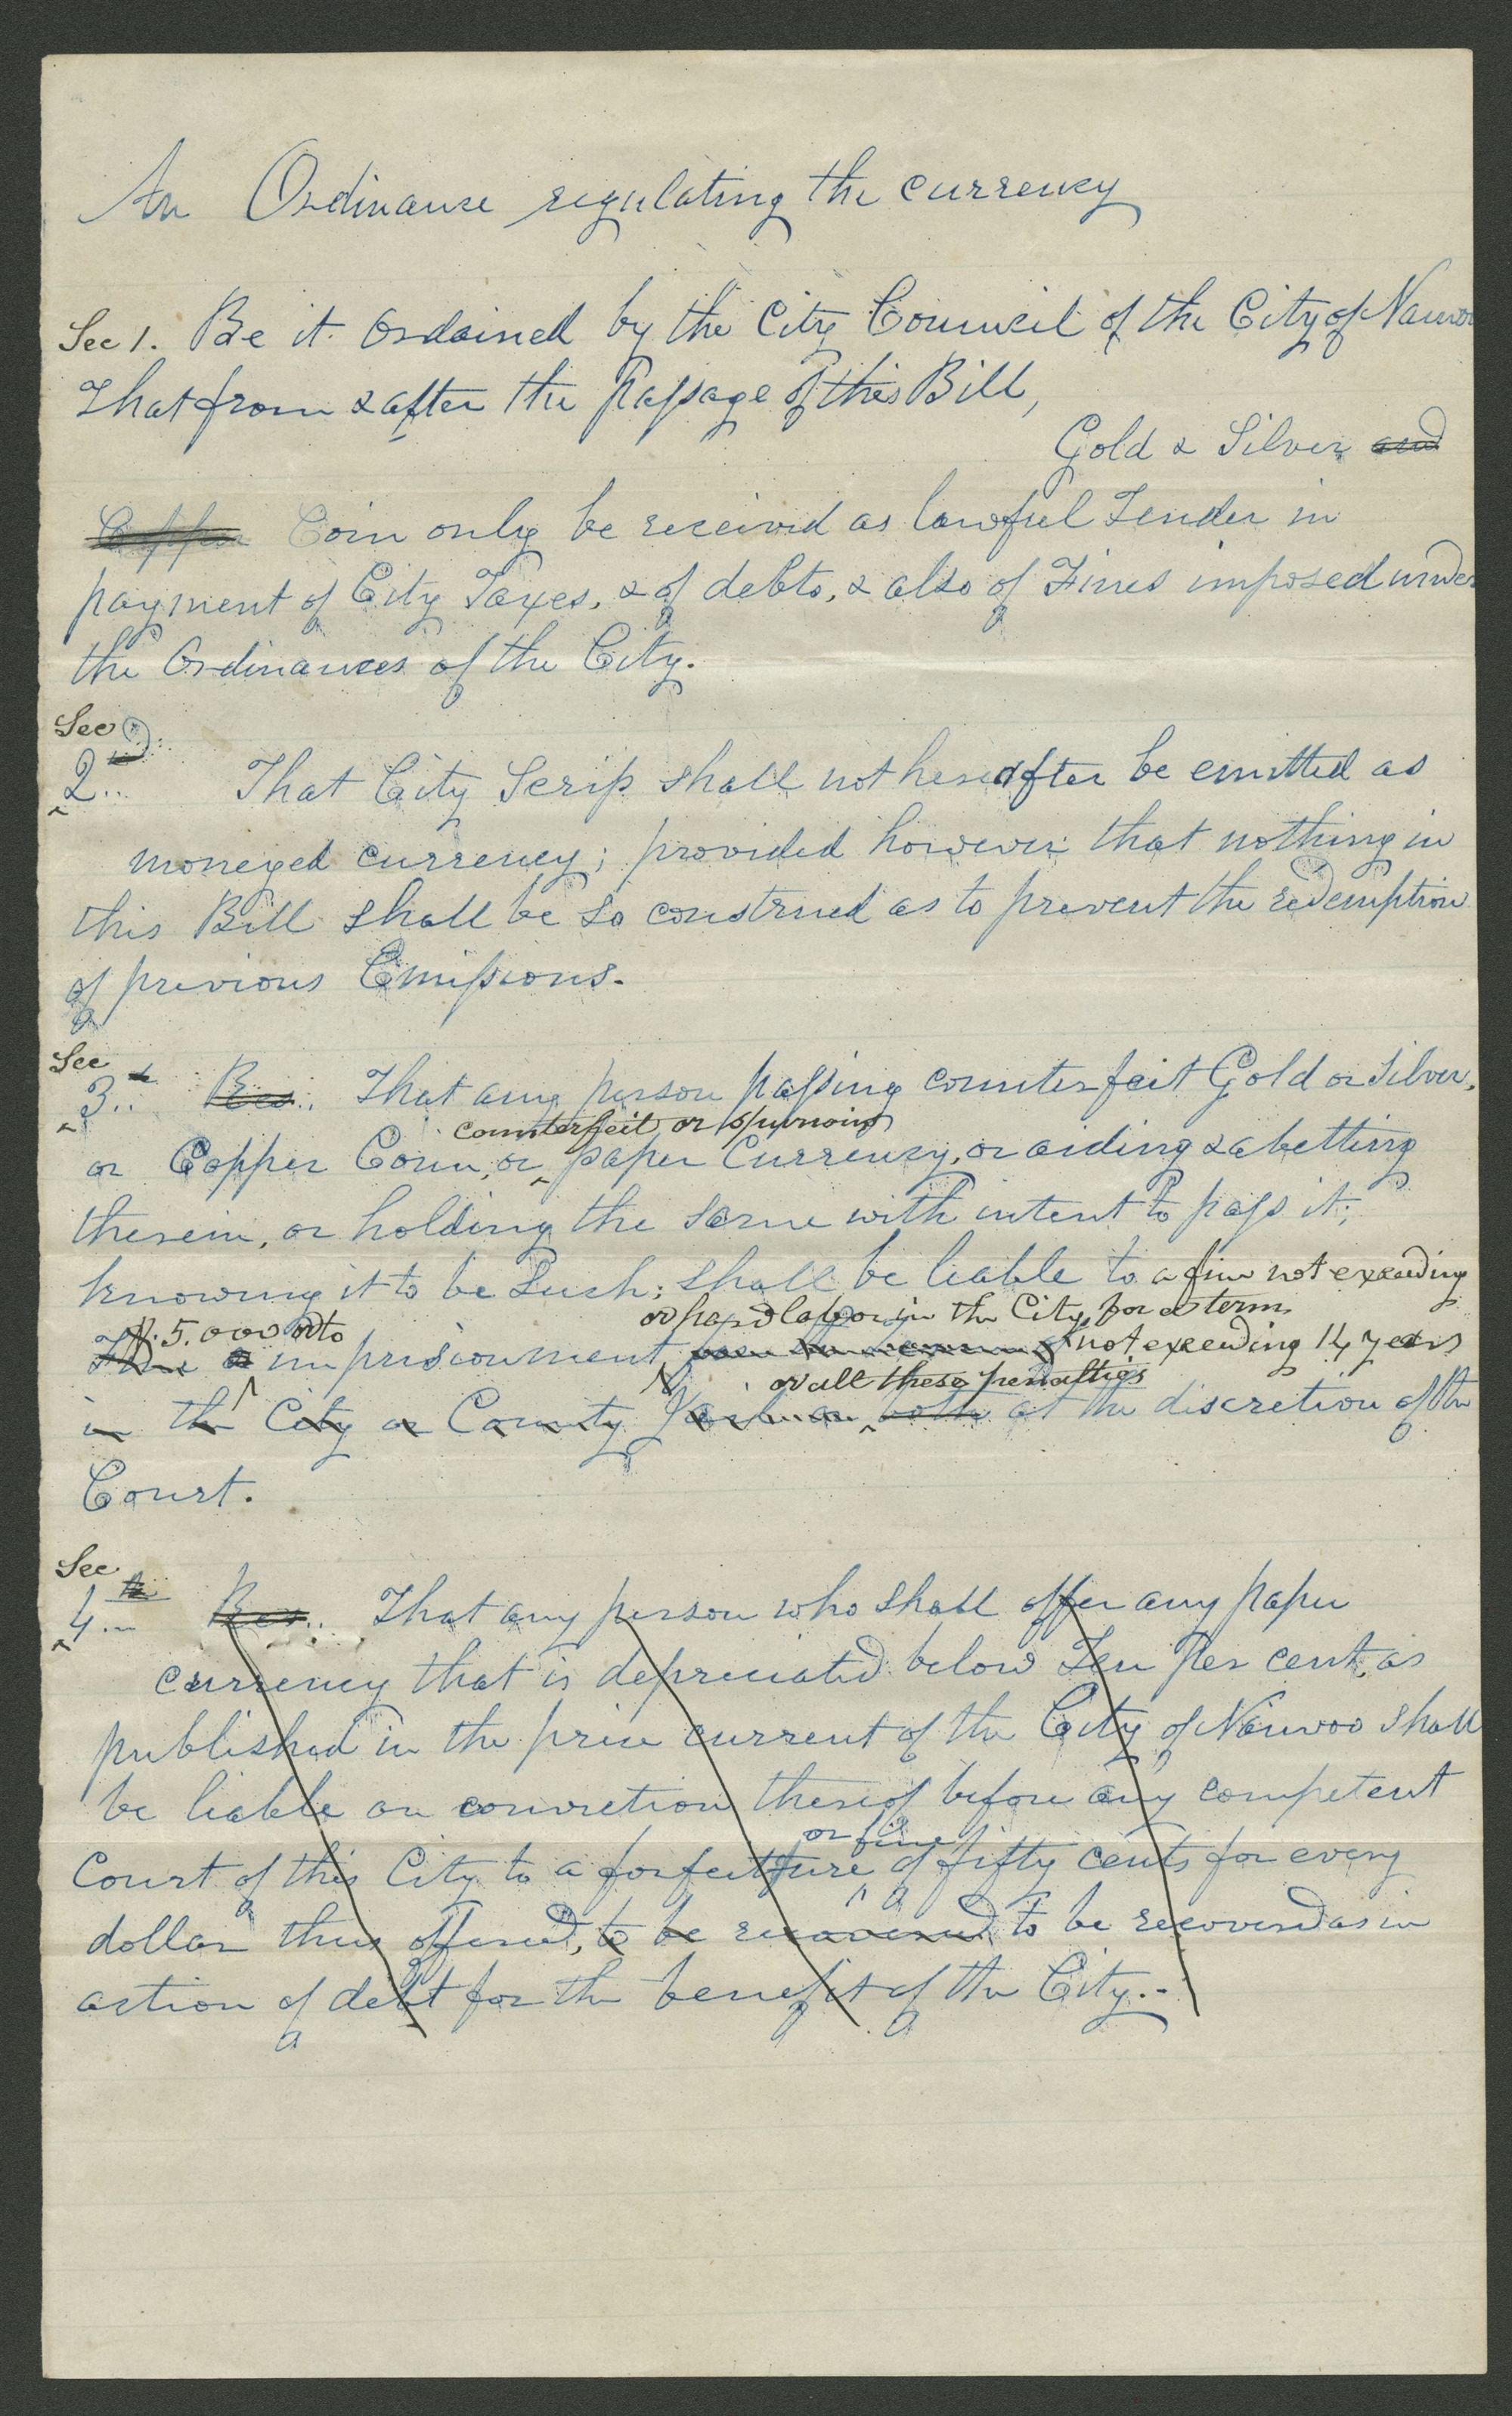 An Ordinance regulating the currency
Sec 1. Be it Ordained by the City Council of the City of Nauvoo
That from & after the Passage of this Bill,
Gold & Silver and
Copper Coin only be received as lawful Tender in
payment of City Taxes, & of debts, & also of Fines imposed under
the Ordinances of the City.
Sec
2nd.. That City Scrip shall not hereafter be emitted as
moneyed currency; provided however that nothing in
this Bill shall be so construed as to prevent the redemption
of previous Emissions.
Sec
3.. Res.. That any person passing counterfeit Gold or Silver,
counterfeit or spurious
or Copper Coin, or paper Currency, or aiding & abetting
therein, or holding the same with intent to pass it;
knowing it to be Such; shall be liable to a fine not exceeding
$. 5.000 or to
or hard labor in the City, for a term
Fine or imprisonment not exceeding 14 years
or all these penalties
in the City or County Jail or both at the discretion of the
Court.
Sec
4th.. Res.. That any person who shall offer any paper
currency that is depreciated below Ten Per cent, as
published in the price current of the City of Nauvoo shall
be liable on conviction thereof before any competent
or fine
Court of this City to a forfeitture of fifty cents for every
dollar thus offered, to be recovered to be recovered as in
action of debt for the benefit of the City..